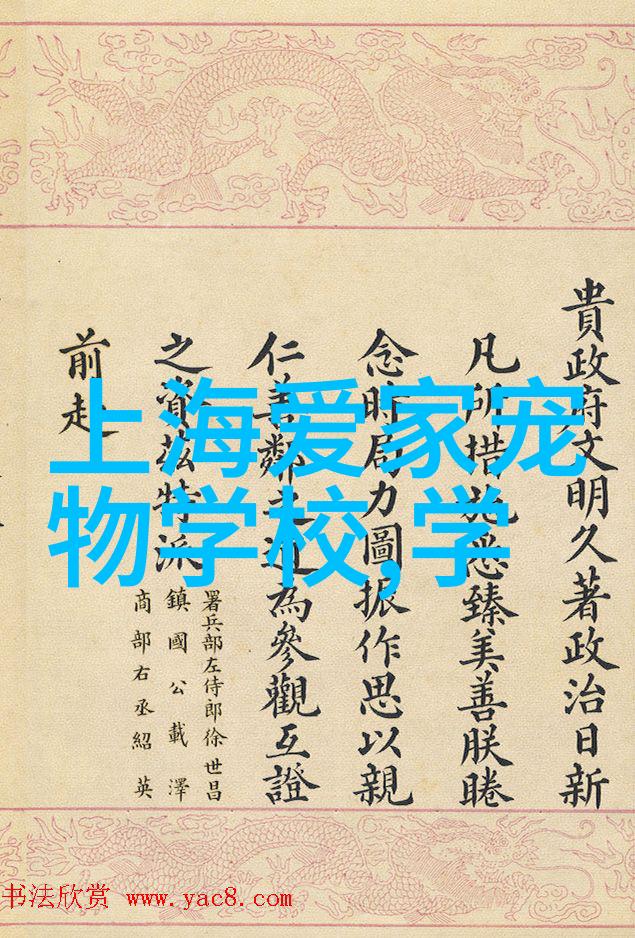 上海爱家宠
物学校,学
貴政府文明久著政治日新
凡所措施悉臻美善朕睠
念時局力圖振作思以親
仁善鄰之道為參觀互證
之資茲特派
署兵部左侍郎徐世昌
鎮國公載澤
商部右丞紹英
前赴
书法欣赏 www.yac8.com